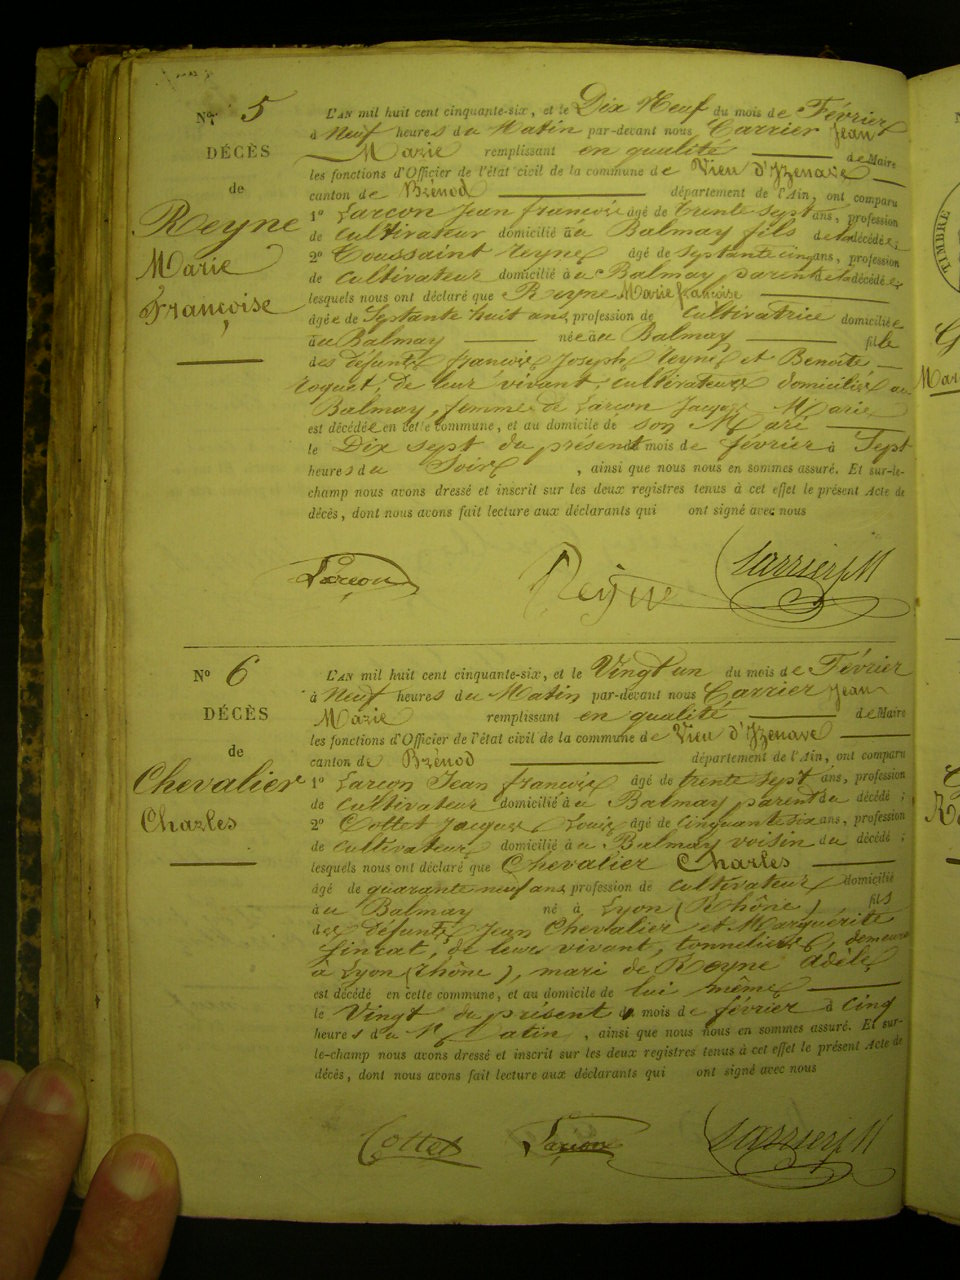 N° 5
DÉCÈS
de
Reyne
Marie
Françoise
L'AN mil huit cent cinquante-six, et le Dix Neuf du mois de Février
à Neuf heures du Matin par-devant nous Carrier Jean
Marie remplissant en qualité de Maire
les fonctions d'Officier de l'état civil de la commune de Vieu d'Yzenave
canton de Brénod département de l'Ain, ont comparu
1° Larçon Jean françois âgé de trente sept ans, profession
de cultivateur domicilié au Balmay fils de la décédée;
2° Toussaint reyne âgé de septante cinq ans, profession
de cultivateur domicilié au Balmay parent de la décédée,
lesquels nous ont déclaré que Reyne Marie françoise
âgée de Septante huit ans, profession de Cultivatrice domiciliée
au Balmay née au Balmay fille
des défunts françois Joseph reyne et Benoite
roquet, de leur vivant, cultivateurs domiciliés au
Balmay, femme de Larçon Jacques Marie
est décédée en cette commune, et au domicile de son Mari
le Dix sept du présent mois de février à Sept
heures du Soir, ainsi que nous nous en sommes assuré. Et sur-le-
champ nous avons dressé et inscrit sur les deux registres tenus à cet effet le présent Acte de
décès, dont nous avons fait lecture aux déclarants qui ont signé avec nous
Larçon Reyne Carrier J M
N° 6
DÉCÈS
de
Chevalier
Charles
L'AN mil huit cent cinquante-six, et le Vingt un du mois de Février
à Neuf heures du Matin par-devant nous Carrier Jean
Marie remplissant en qualité de Maire
les fonctions d'Officier de l'état civil de la commune de Vieu d'Yzenave
canton de Brénod département de l'Ain, ont comparu
1° Larçon Jean françois âgé de trente sept ans, profession
de cultivateur domicilié au Balmay parent du décédé;
2° Cottet Jacques Louis âgé de cinquante six ans, profession
de cultivateur domicilié au Balmay voisin du décédé;
lesquels nous ont déclaré que Chevalier Charles
âgé de quarante neuf ans profession de cultivateur domicilié
au Balmay né à Lyon (Rhône) fils
des défunts Jean Chevalier et Marguérite
de leur vivant, tonneliers, demeurant
à Lyon (rhône), mari de Reyne Adèle
est décédé en cette commune, et au domicile de lui même
le Vingt du présent mois de février à Cinq
heures du Matin, ainsi que nous nous en sommes assuré. Et sur-
le-champ nous avons dressé et inscrit sur les deux registres tenus à cet effet le présent Acte de
décès, dont nous avons fait lecture aux déclarants qui ont signé avec nous
Cottet Larçon Carrier J M
TIMBRE